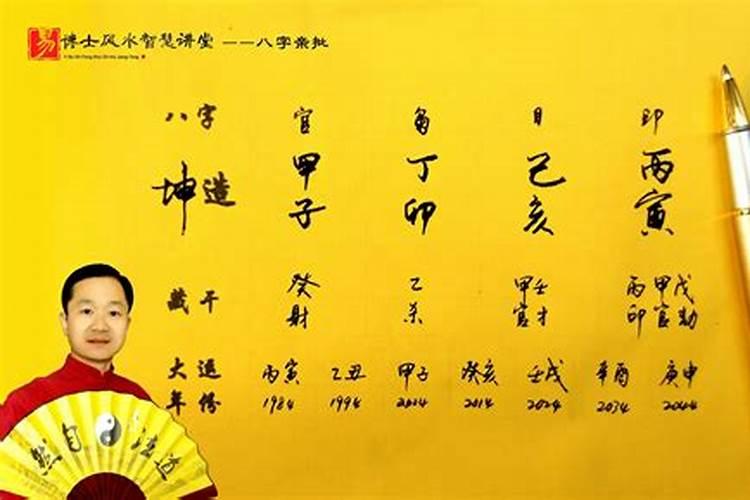 易 博士风水智慧讲堂 ——八字亲批
八字 官 日 印
坤造 甲 丁 己 丙
子 卯 亥 寅
藏干 癸 乙 甲壬 丙甲戊
财 杀 官才 印官劫
大运 丙寅 乙丑 甲子 癸亥 壬戌 辛酉 庚申
年份 1984 1994 2004 2014 2024 2034 2044
道法自然